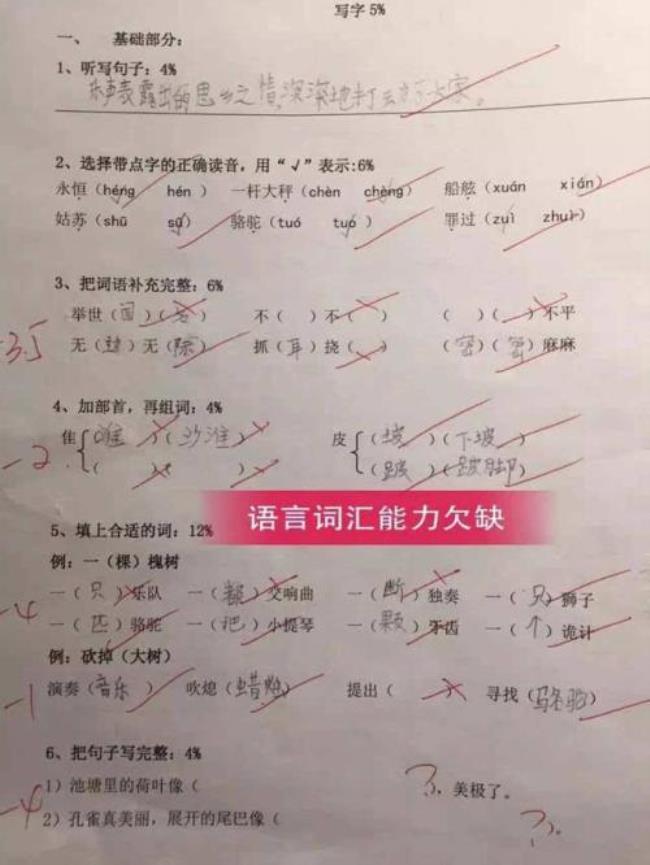 写字5%
一、 基础部分：
1、听写句子：4%
琴声表露出的思乡之情,深深地打动了大家。
2、选择带点字的正确读音，用“√”表示:6%
永恒（héng hén ） 一杆大秤（chèn chèng） 船舷（xuán xián）
姑苏（shū sū） 骆驼（tuó tuo ） 罪过（zuì zhuì）
3、把词语补充完整：6%
举世（国）( ) 不（ ）不（ ） （ ）( ）不平
无（边）无（际） 抓（耳）挠（ ） （密）（密）麻麻
-3.5
4、加部首，再组词：4%
隹 （ ）（沙滩） 皮 （坡 ）（下坡 ）
（ ）（ ） （跛 ）（跛脚）
-2
语言词汇能力欠缺
5、填上合适的词：12%
例：一（棵）槐树
一（只 ）乐队 一（ ）交响曲 一（断 ）独奏 一（ 只）狮子
-4
一（匹 ）骆驼 一（把 ）小提琴 一（颗 ）牙齿 一（ 个 ）诡计
例：砍掉（大树）
演奏（音乐 ） 吹熄（蜡烛） 提出（ ） 寻找（骆驼）
-1
6、把句子写完整：4%
1）池塘里的荷叶像（ ?，美极了。
-4
2）孔雀真美丽，展开的尾巴像（ ?。